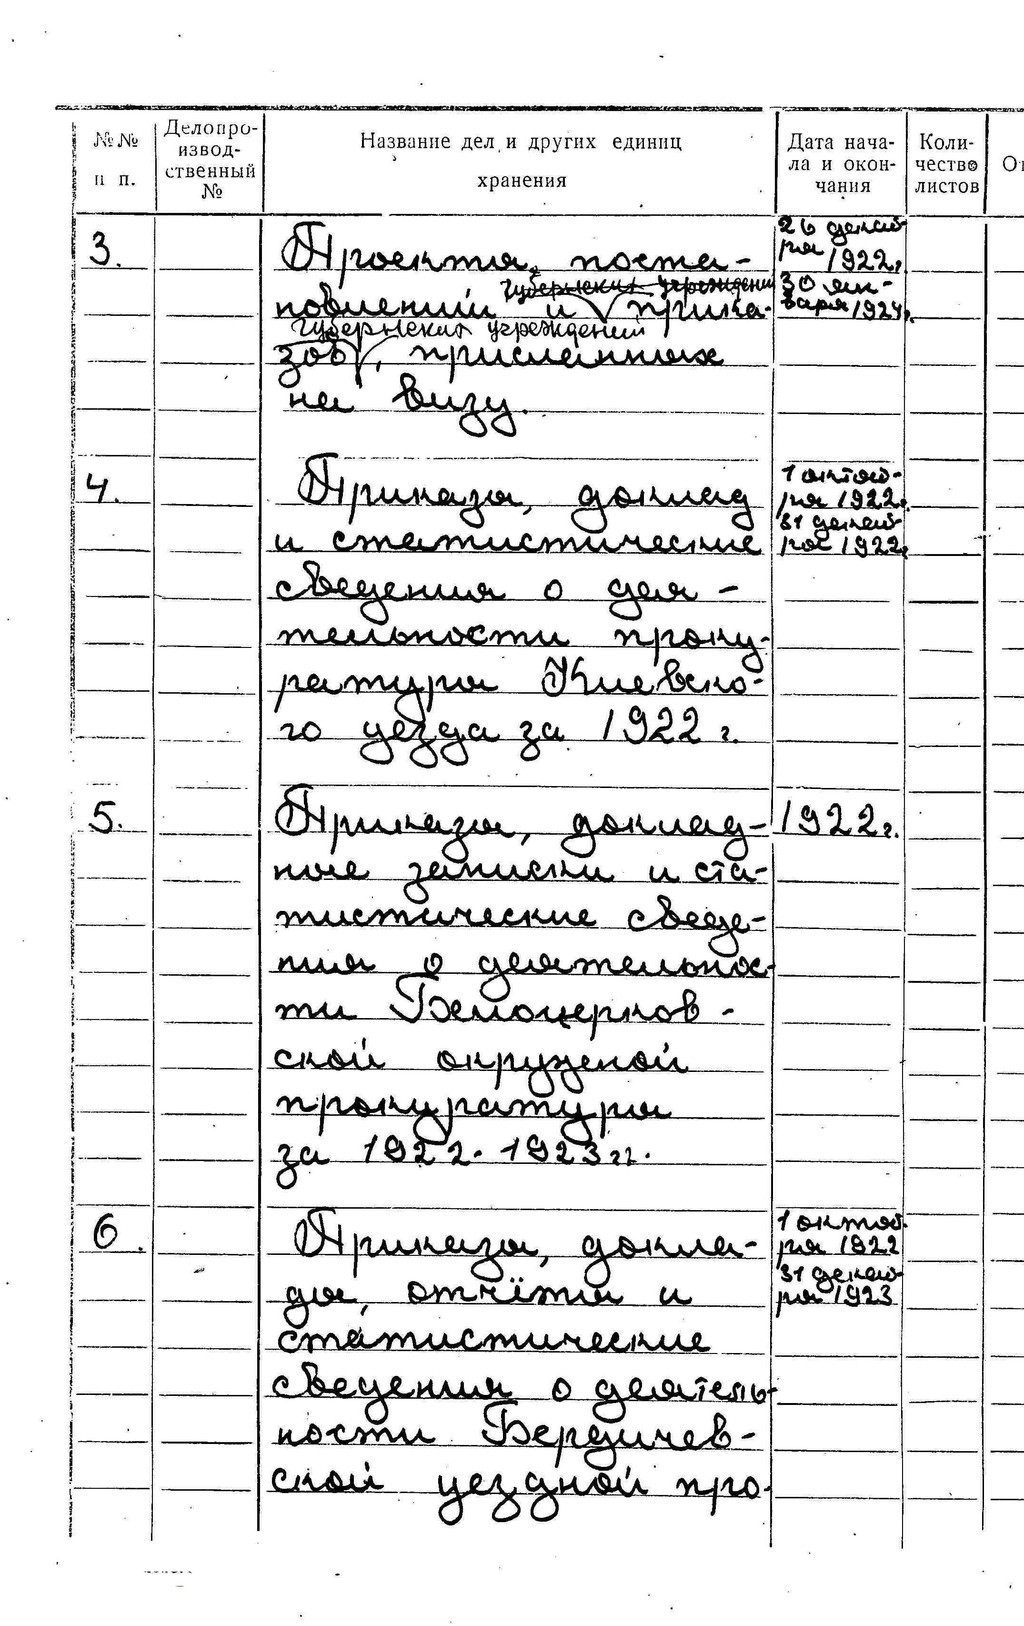 №№ п п.
Делопроизвод-
ственный
№
Название дел и других единиц
хранения
Дата нача-
ла и окон-
чания
Коли-
чество
листов
3.
Проекты поста-
губернских учреждений
новлений и прика-
губернских учреждений
зов, присланных
на визу.
26 декаб-
ря 1922г.
30 ян-
варя 1924г.
4.
Приказы, доклад
и статистические
сведения о дея-
тельности проку-
ратуры Киевско-
го уезда за 1922 г.
1 октяб-
ря 1922г.
31 декаб-
ря 1922г.
5.
Приказы, доклад-
ные записки и ста-
тистические сведе-
ния о деятельнос-
ти Белоцерков-
ской окружной
прокуратуры
за 1922-1923 гг.
1922г.
6.
Приказы, докла-
ды, отчёты и
статистические
сведения о деятель-
ности Бердичев-
ской уездной про-
1 октяб-
ря 1922
31 декаб-
ря 1923